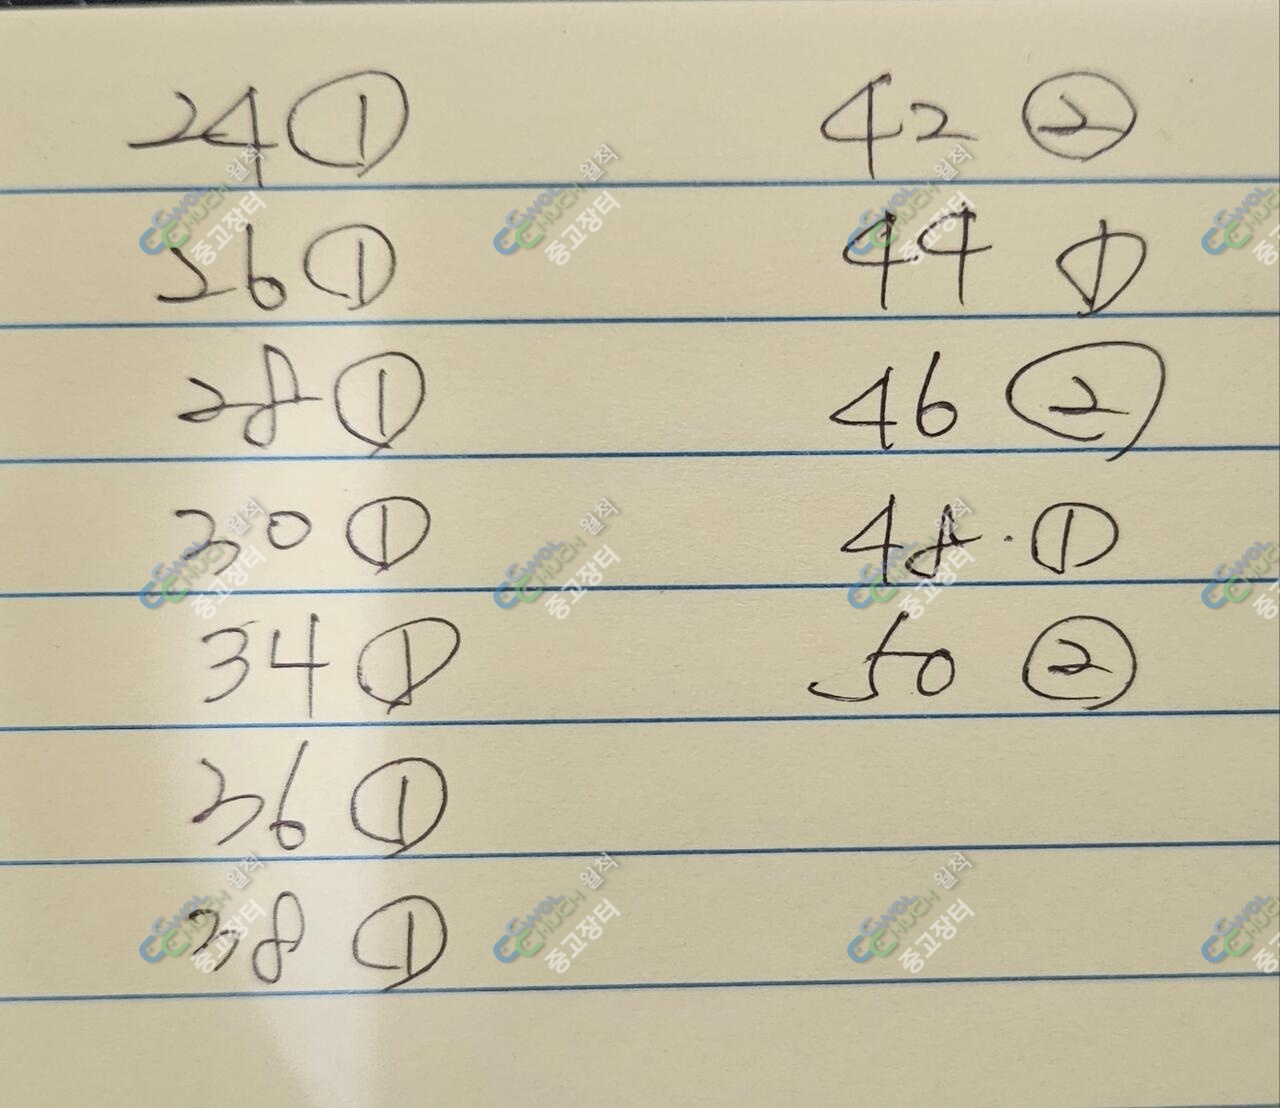 24 ①
26 ①
28 ①
30 ①
34 ①
36 ①
38 ①
42 ②
44 ①
46 ②
48 · ①
50 ②
CCWOL CHUCH 월척 중고장터